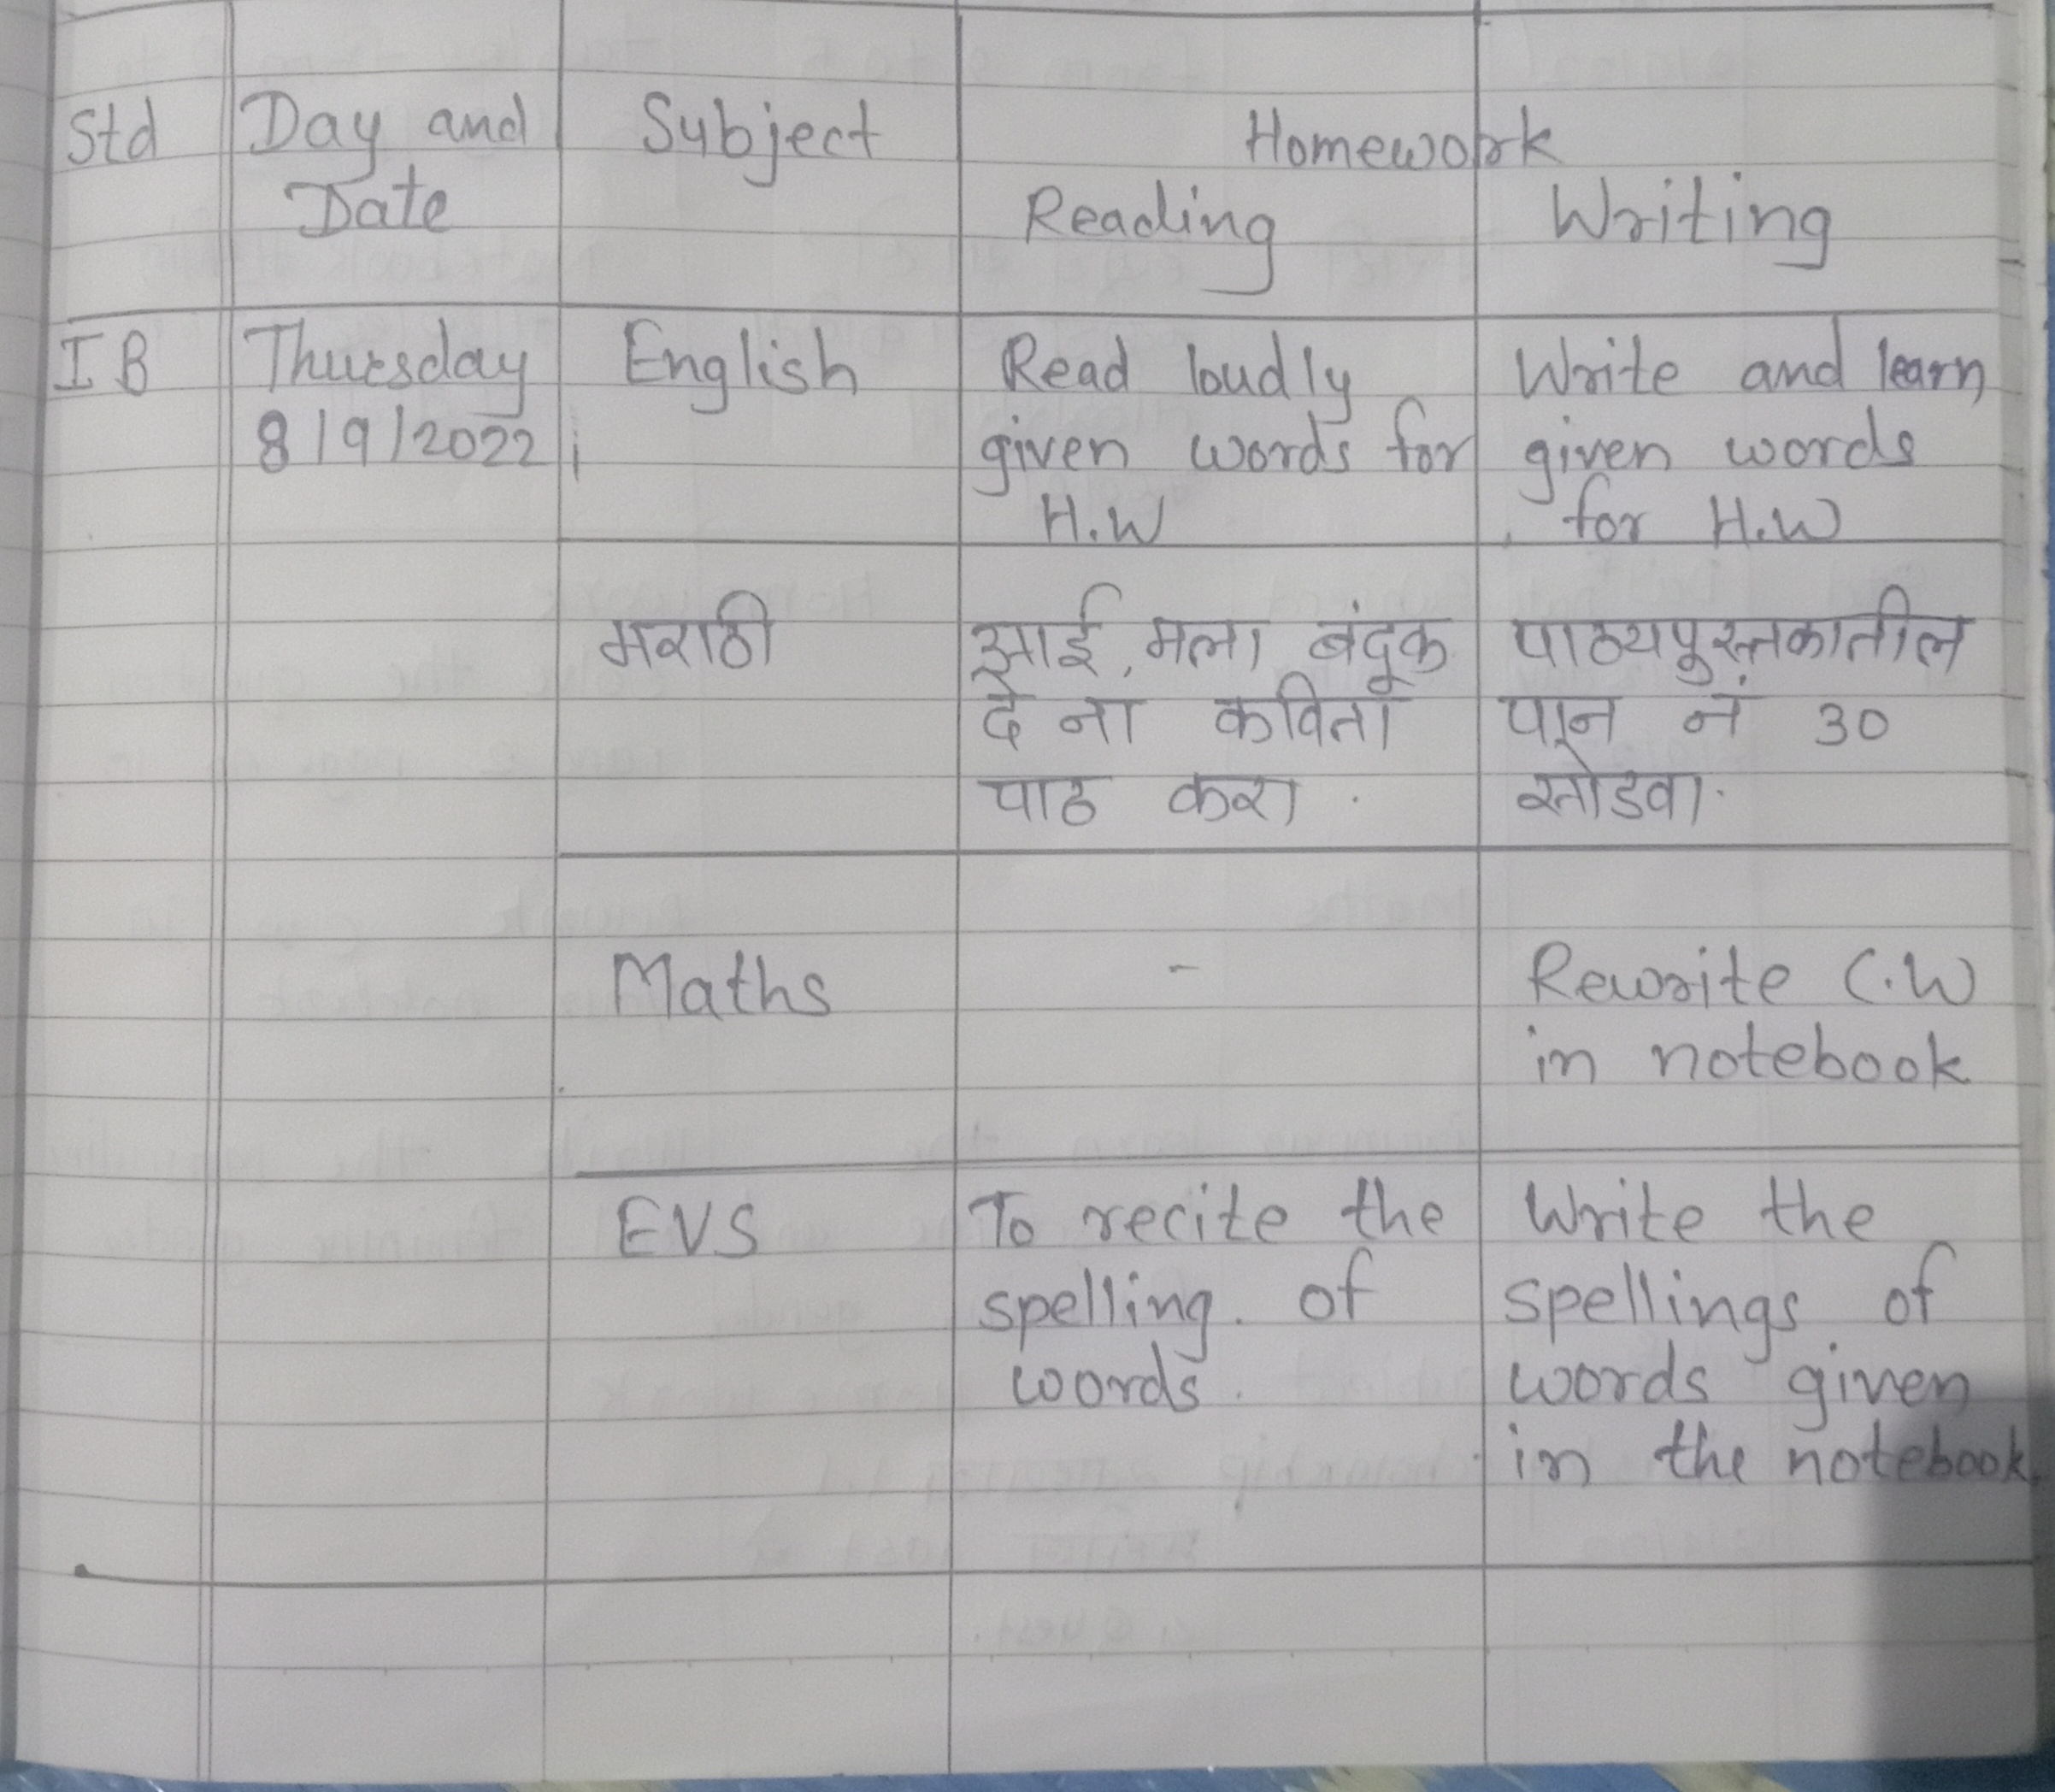 Std Day and Subject Homework
Date Reading Writing
I B Thursday English Read loudly Write and learn
8/9/2022 given words for given words
H.W for H.W
मराठी आई, मला बंदूक पाठ्यपुस्तकातील
दे ना कविता पान नं 30
पाठ करा. सोडवा.
Maths - Rewrite C.W
in notebook
EVS To recite the Write the
spelling of spellings of
words. words given
in the notebook.